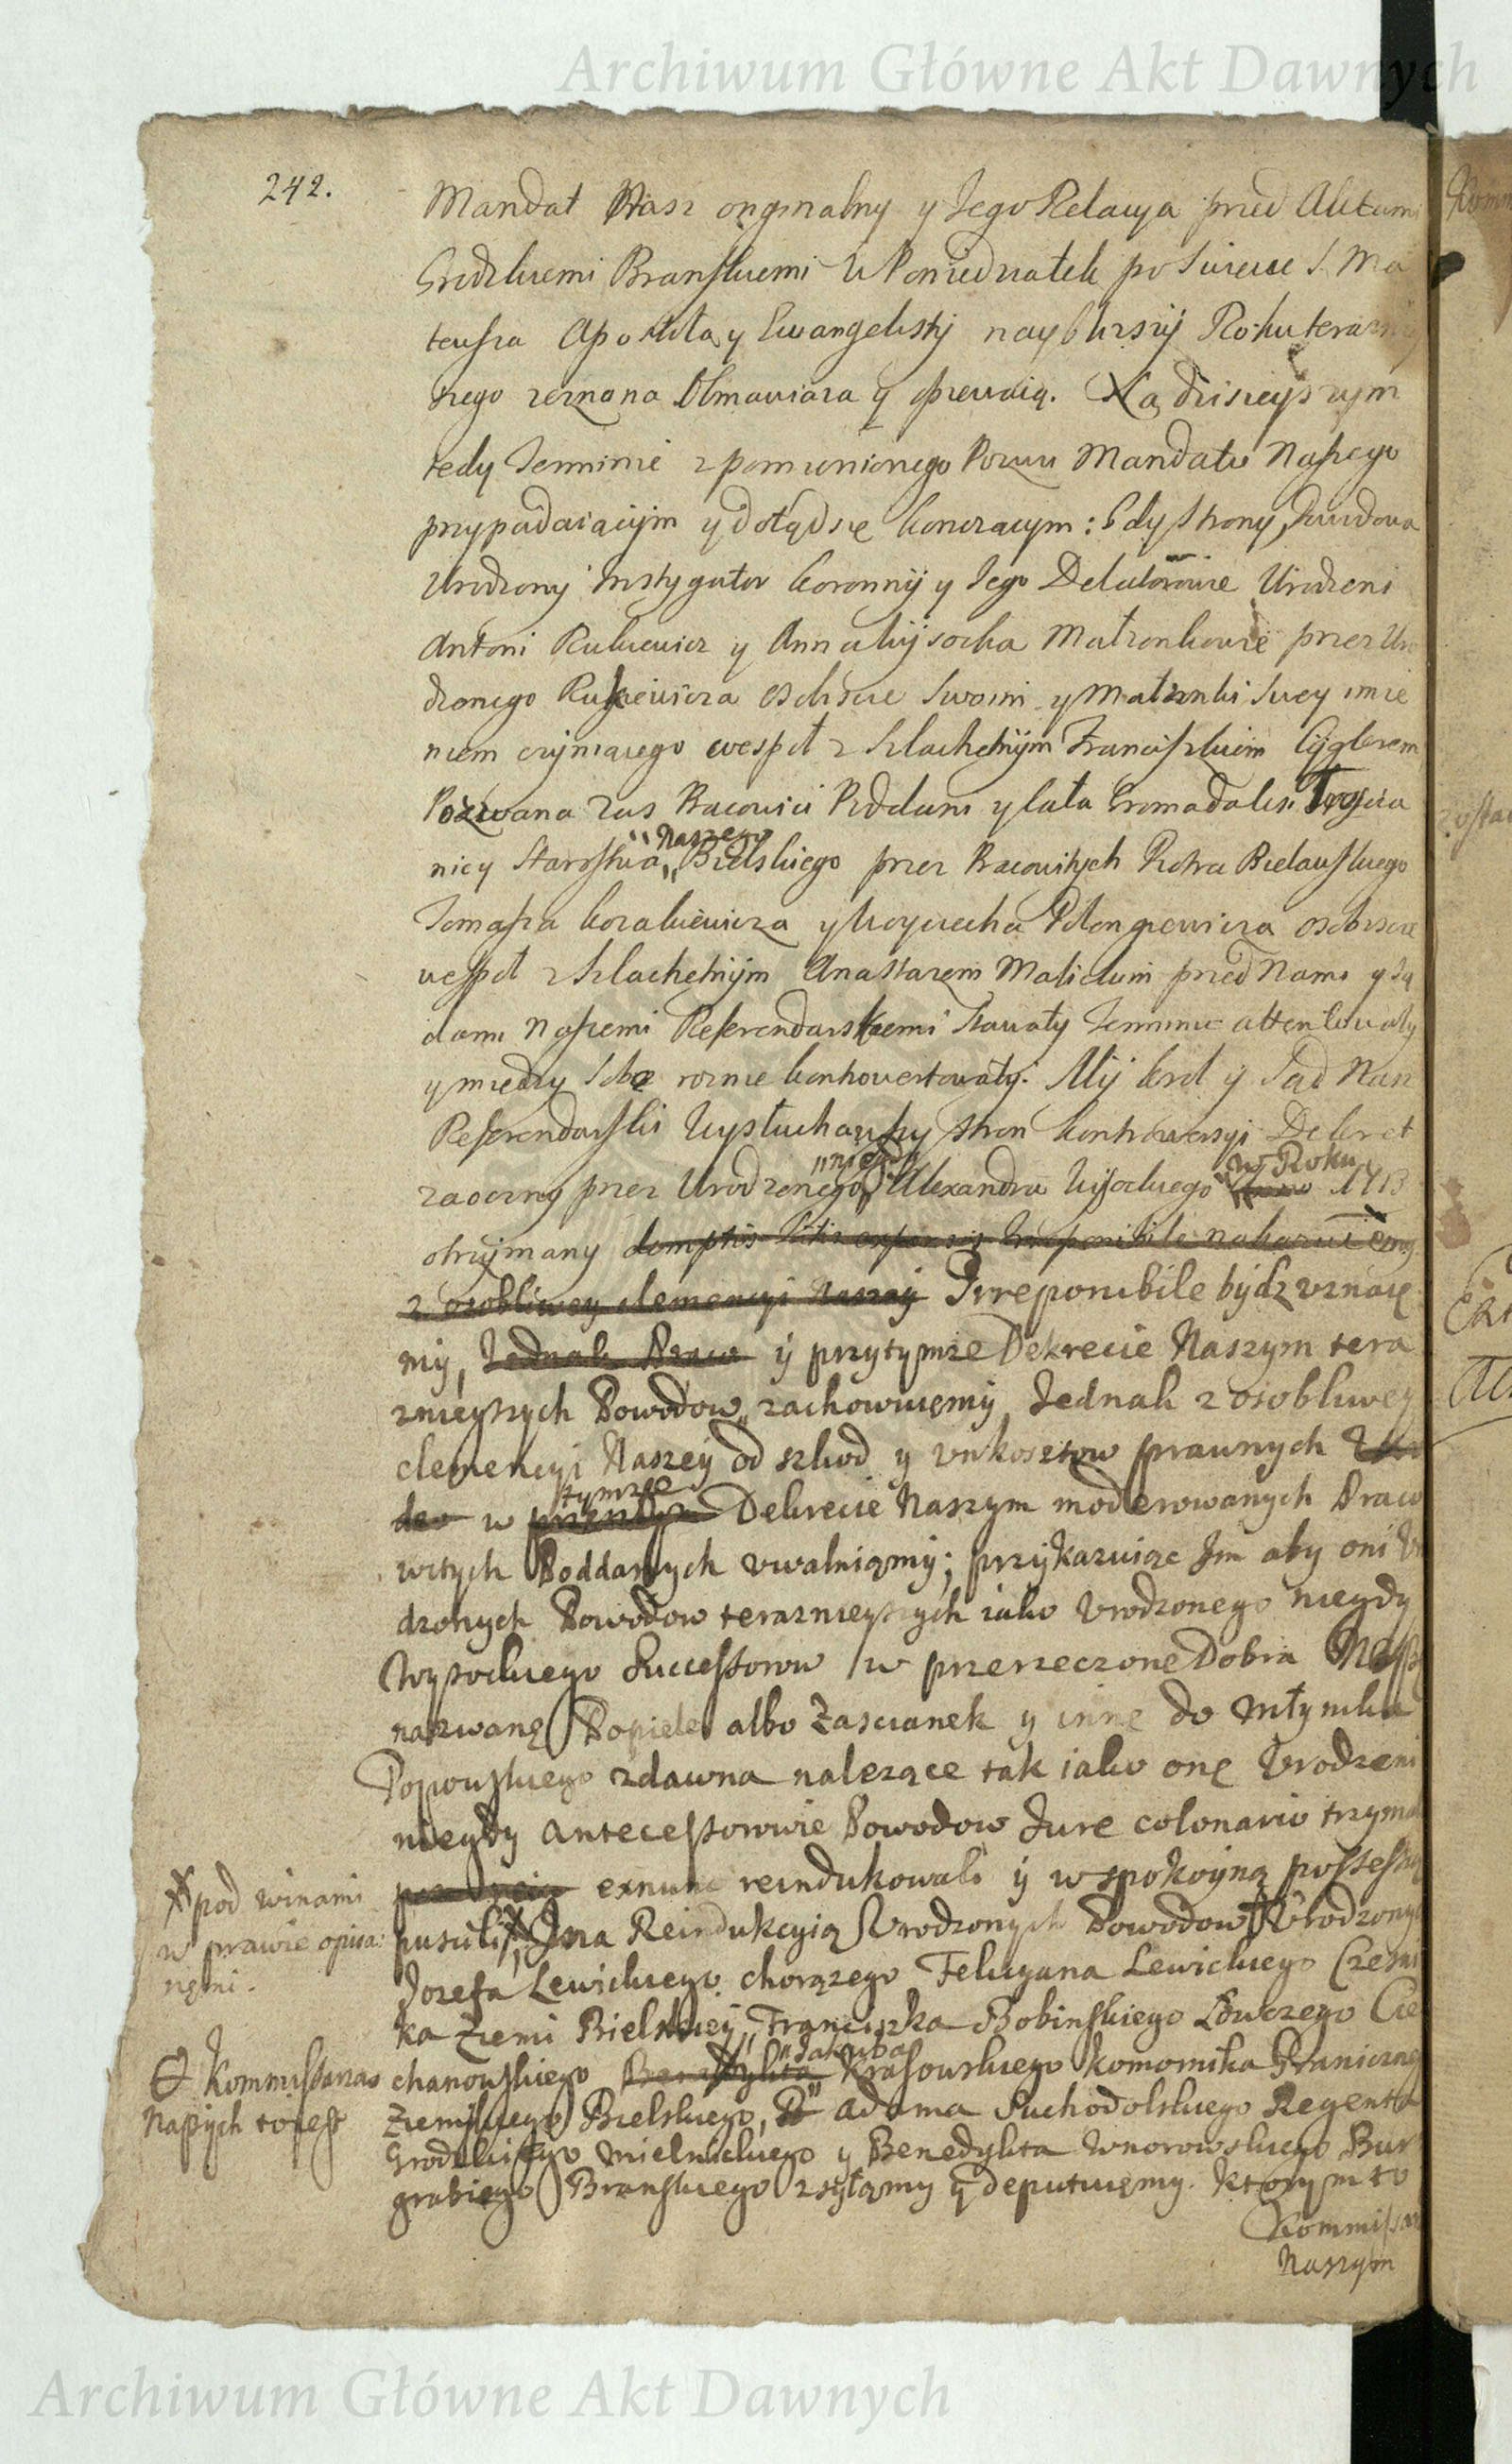 Archiwum Główne Akt Dawnych
242.
Mandat Nasz orginalny y Jego Relacya przed Aktami
Grodzkiemi Branskiemi w Poniedziałek po Swięcie S. Ma
teusza Apostoła y Ewangelisty nayblizszy Roku teraznie
szego zeznana Obmawiaia y opiewaią. Na dzisieyszym
tedy Terminie z pomienionego Pozwu Mandatu Naszego
przypadaiącym y dotąd się konczącym: Gdy strony, Powodowa
Urodzony Instygator koronny y Jego Delatorowie Urodzeni
Antoni Rukiewicz y Anna Wysocka Małzonkowie przez Uro
dzonego Rukiewicza osobiscie Swoim y Małzonki Swey imie
niem czyniącego wespoł z Szlachetnym Franciszkiem Cyglerem
Pozwana zas Pracowici Poddani y cała Gromada
nicy Starostwa „Naszego„ Bielskiego przez Pracowitych Piotra Bielawskiego
Tomasza Kozakiewicza y Woyciecha osobiscie
wespoł z Szlachetnym Anastazem przed Nami y Są
dami Naszemi Referendarskiemi Stawały Terminu attentowały
y między Sobą roznie kontrowertowały. My krol y Sąd Nasz
Referendarski Wysłuchawszy stron kontrowersyi Dekret
zaoczny przez Urodzonego „niegdy„ Alexandra Wysockiego w Roku 1713
otrzymany demptis Litis expensis Irreponibile nakazuiemy
z osobliwey clemencyi Naszey Irreponibile bydz uznaię
my, Jednak Praw y przytymze Dekrecie Naszym tera
znieyszych Powodow„ zachowuięmy Jednak z osobliwey
clemencyi Naszey od szkod y unkosztow prawnych
w tymze Dekrecie Naszym moderowanych Praco
witych Poddanych uwalniamy; przykazuiąc Im aby oni Uro
dzonych Powodow teraznieyszych iako Urodzonego niegdy
Wysockiego Successorow w przerzeczone Dobra
nazwanę Popiele albo Zascianek y innę do Młynika
Popowskiego zdawna nalezące tak iako onę Urodzeni
niegdy Antecessorowie Powodow Jure colonario trzyma
exnunc reindukowali y w spokoyną possessyą
pusuli, Na Reindukcyią Urodzonych Powodow Urodzonych
Jozefa Lewickiego chorązego Felicyana Lewickiego Czesni
ka Ziemi Bielskiey,, Franciszka Bobinskiego Łowczego Cie
chanowskiego Benedykta „Jakuba„ Krasowskiego komornika Graniczneg
Ziemskiego Bielskiego, Adama Suchodolskiego Regenta
Grodzkiego Mielnickiego y Benedykta Wnorowskiego Bur
grabiego Branskiego zsyłamy y deputuięmy. Ktorym to
Kommissar
Naszym
pod winami
w prawie opisa:
nęmi.
Kommissarzow
Naszych to iest
Archiwum Główne Akt Dawnych